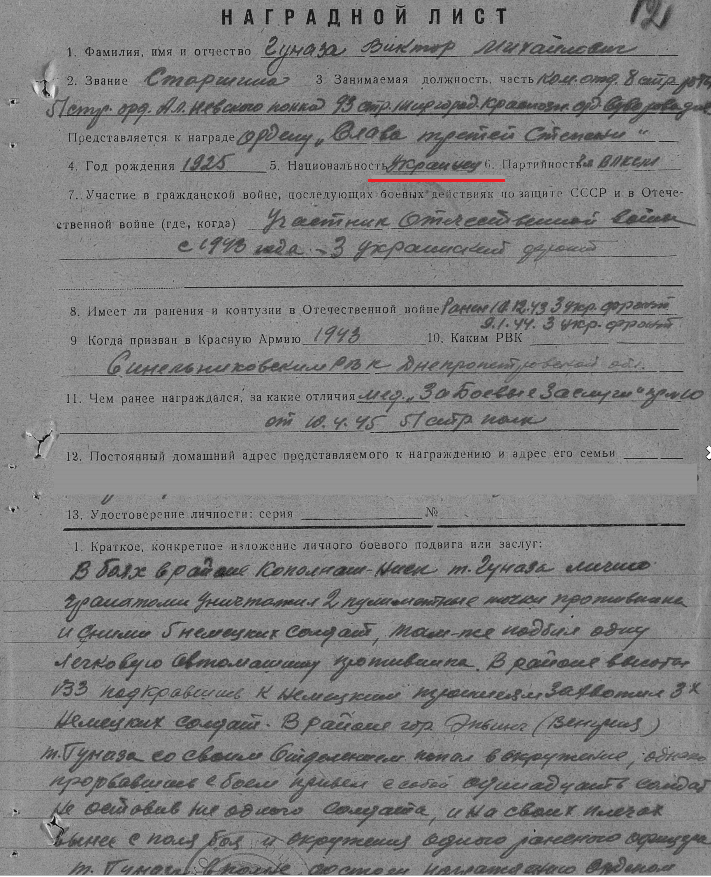 НАГРАДНОЙ ЛИСТ
12
1. Фамилия, имя и отчество Гуназа Виктор Михайлович
2. Звание Старшина 3. Занимаемая должность, часть Ком. отд. 8 стр. роты
51 стр. орд. Ал. Невского полка 93 стр. Миргород. Краснозн. орд. Суворова див.
Представляется к награде ордену „Слава третей Степени"
4. Год рождения 1925 5. Национальность украинец 6. Партийность чл ВЛКСМ
7. Участие в гражданской войне, последующих боевых действиях по защите СССР и в Отече-
ственной войне (где, когда) Участник Отечественной войны
с 1943 года – 3 украинский фронт
8. Имеет ли ранения и контузии в Отечественной войне Ранен 10.12.43 3 укр. фронт
9.1.44. 3 укр. фронт
9 Когда призван в Красную Армию 1943 10. Каким РВК
Синельниковским РВК Днепропетровской обл.
11. Чем ранее награждался, за какие отличия мед. „За Боевые Заслуги"
от 10.4.45 51 стр полк
12. Постоянный домашний адрес представляемого к награждению и адрес его семьи
13. Удостоверение личности: серия №
1. Краткое, конкретное изложение личного боевого подвига или заслуг:
В боях в районе т. Гуназа лично
гранатами уничтожил 2 пулиметные точки противника
и сними 5 немецких солдат, там-же подбил одну
легковую автомашину противника. В районе высоты
133 подкравшись к немецким траншеям захватил 3х
немецких солдат. В районе гор (Венгрия)
т. Гуназа со своим отделением попал в окружение, однако
прорвавшись с боем привел с собой одинадцать солдат
не оставив не одного солдата, и на своих плечах
вынес с поля боя и окружения одного раненого офицера
т. Гуназа вполне достоин награждения орденом